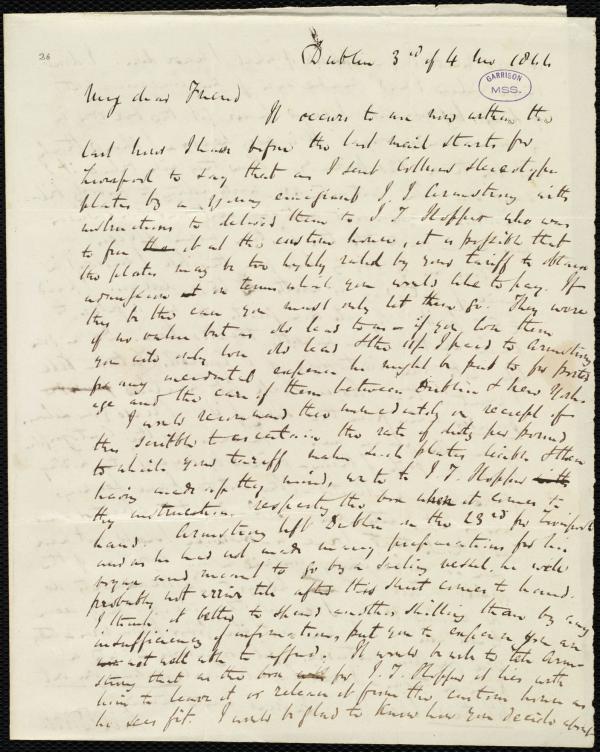 26
Dublin 3rd of 4 mo 1844
GARRISON
MSS.
My dear Friend
It occurs to me now within the
last hour I have before the last mail starts for
Liverpool to say that as I sent Collins stereotype
plates by a young emigrant J. J. Armstrong with
instructions to deliver them to I. T. Hopper who was
to free the it at the custom house, it is possible that
the plates may be too highly rated by your tariff to obtain
admission on terms which you would like to pay. If
this be the case you must only let them go. They were
of no value but as old lead to us – if you lose them
you will only lose old lead & the I paid to Armstrong
for any incidental expense he might be put to for porter
age and the care of them between Dublin & New York.
I would recommend thee immediately on receipt of
this scribble to ascertain the rate of duty per pound
to which your tariff makes such plates liable & then
having made up thy mind, write to I. T. Hopper with
thy instructions respecting the box when it comes to
hand. Armstrong left Dublin on the 23rd for Liverpool
and as he had not made many preparations for his
voyage and meant to go by a sailing vessel, he will
probably not arrive till after this sheet comes to hand.
I think it better to spend another shilling than by any
insufficiency of information, put you to expense you are
not well able to afford. It would be well to tell Arm-
strong that as the box for I. T. Hopper it lies with
him to leave it or release it from the custom house as
he sees fit. I would be glad to know how you decide about